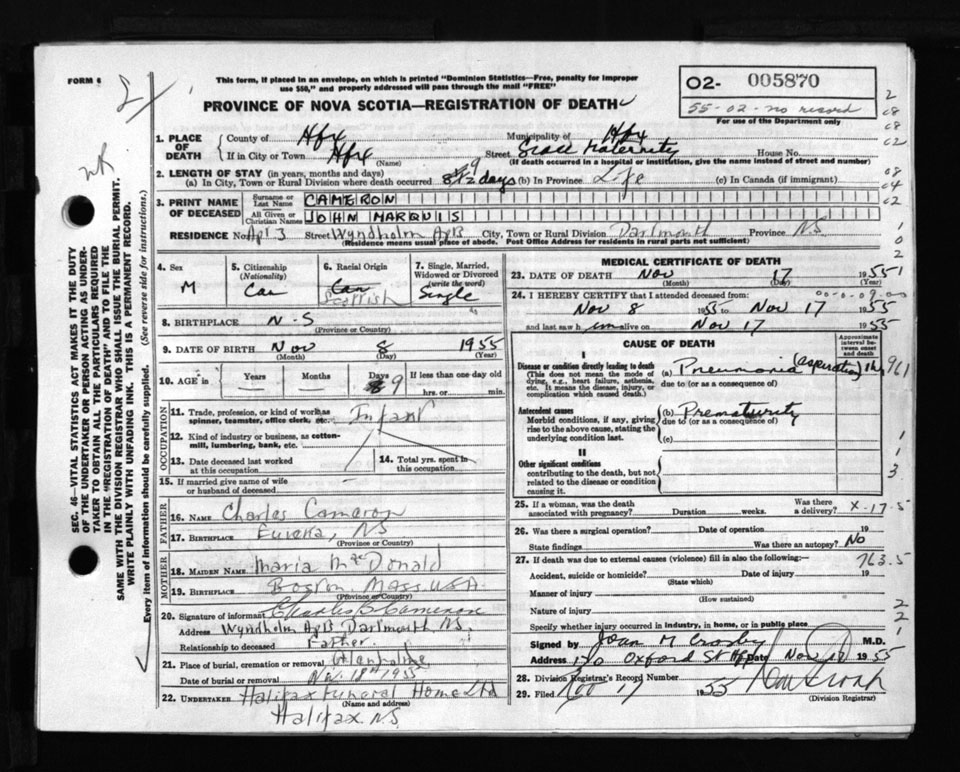 FORM 6
This form, if placed in an envelope, on which is printed "Dominion Statistics—Free, penalty for improper
use $50," and properly addressed will pass through the mail "FREE"
PROVINCE OF NOVA SCOTIA—REGISTRATION OF DEATH
02- 005870
55-02-no record
For use of the Department only
1. PLACE OF DEATH County of Hfx Municipality of Hfx
If in City or Town Hfx Street Grace Maternity House No.
(Name) (If death occurred in a hospital or institution, give the name instead of street and number)
2. LENGTH OF STAY (in years, months and days)
(a) In City, Town or Rural Division where death occurred 8 1/2 days 9 (b) In Province Life (c) In Canada (if immigrant)
3. PRINT NAME OF DECEASED Surname or Last Name CAMERON
All Given or Christian Names JOHN MARQUIS
RESIDENCE No. Apt 3 Street Wyndholm Apts City, Town or Rural Division Dartmouth Province NS
(Residence means usual place of abode. Post Office Address for residents in rural parts not sufficient)
4. Sex M
5. Citizenship (Nationality) Can
6. Racial Origin Can Scottish
7. Single, Married, Widowed or Divorced (write the word) Single
8. BIRTHPLACE N-S
(Province or Country)
9. DATE OF BIRTH Nov 8 1955
(Month) (Day) (Year)
10. AGE in Years Months Days 9 If less than one day old
hrs. or min.
OCCUPATION
11. Trade, profession, or kind of work as spinner, teamster, office clerk, etc. Infant
12. Kind of industry or business, as cotton-mill, lumbering, bank, etc.
13. Date deceased last worked at this occupation
14. Total yrs. spent in this occupation
15. If married give name of wife or husband of deceased
FATHER
16. NAME Charles Cameron
17. BIRTHPLACE Eureka, NS
(Province or Country)
MOTHER
18. MAIDEN NAME Maria MacDonald
19. BIRTHPLACE Boston Mass USA
(Province or Country)
20. Signature of informant Charles B Cameron
Address Wyndholm Apts Dartmouth NS
Relationship to deceased Father
21. Place of burial, cremation or removal
Date of burial or removal Nov. 18th 1955
22. UNDERTAKER Halifax Funeral Home Ltd
(Name and address)
Halifax NS
MEDICAL CERTIFICATE OF DEATH
23. DATE OF DEATH Nov 17 1955
(Month) (Day)
24. I HEREBY CERTIFY that I attended deceased from:
Nov 8 1955 to Nov 17 1955
and last saw him alive on Nov 17 1955
CAUSE OF DEATH
Approximate interval between onset and death
I
Disease or condition directly leading to death
(This does not mean the mode of dying, e.g., heart failure, asthenia, etc. It means the disease, injury, or complication which caused death.)
(a) Pneumonia (aspiration)
due to (or as a consequence of)
Antecedent causes
Morbid conditions, if any, giving rise to the above cause, stating the underlying condition last.
(b) Prematurity
due to (or as a consequence of)
(c)
II
Other significant conditions
contributing to the death, but not related to the disease or condition causing it.
25. If a woman, was the death associated with pregnancy? Duration weeks. Was there a delivery? X-17-5
26. Was there a surgical operation? Date of operation 19
State findings Was there an autopsy? No
27. If death was due to external causes (violence) fill in also the following:— 763.5
Accident, suicide or homicide? Date of injury 19
(State which)
Manner of injury
(How sustained)
Nature of injury
Specify whether injury occurred in industry, in home, or in public place
Signed by Joan M Crosby M.D.
Address 170 Oxford St Hfx Date Nov 1955
28. Division Registrar's Record Number
29. Filed 17 1955
(Division Registrar)
SEC. 46—VITAL STATISTICS ACT MAKES IT THE DUTY
OF THE UNDERTAKER OR PERSON ACTING AS UNDER-
TAKER TO OBTAIN ALL THE PARTICULARS REQUIRED
IN THE "REGISTRATION OF DEATH" AND TO FILE THE
SAME WITH THE DIVISION REGISTRAR WHO SHALL ISSUE THE BURIAL PERMIT.
WRITE PLAINLY WITH UNFADING INK. THIS IS A PERMANENT RECORD.
Every item of information should be carefully supplied. (See reverse side for instructions.)